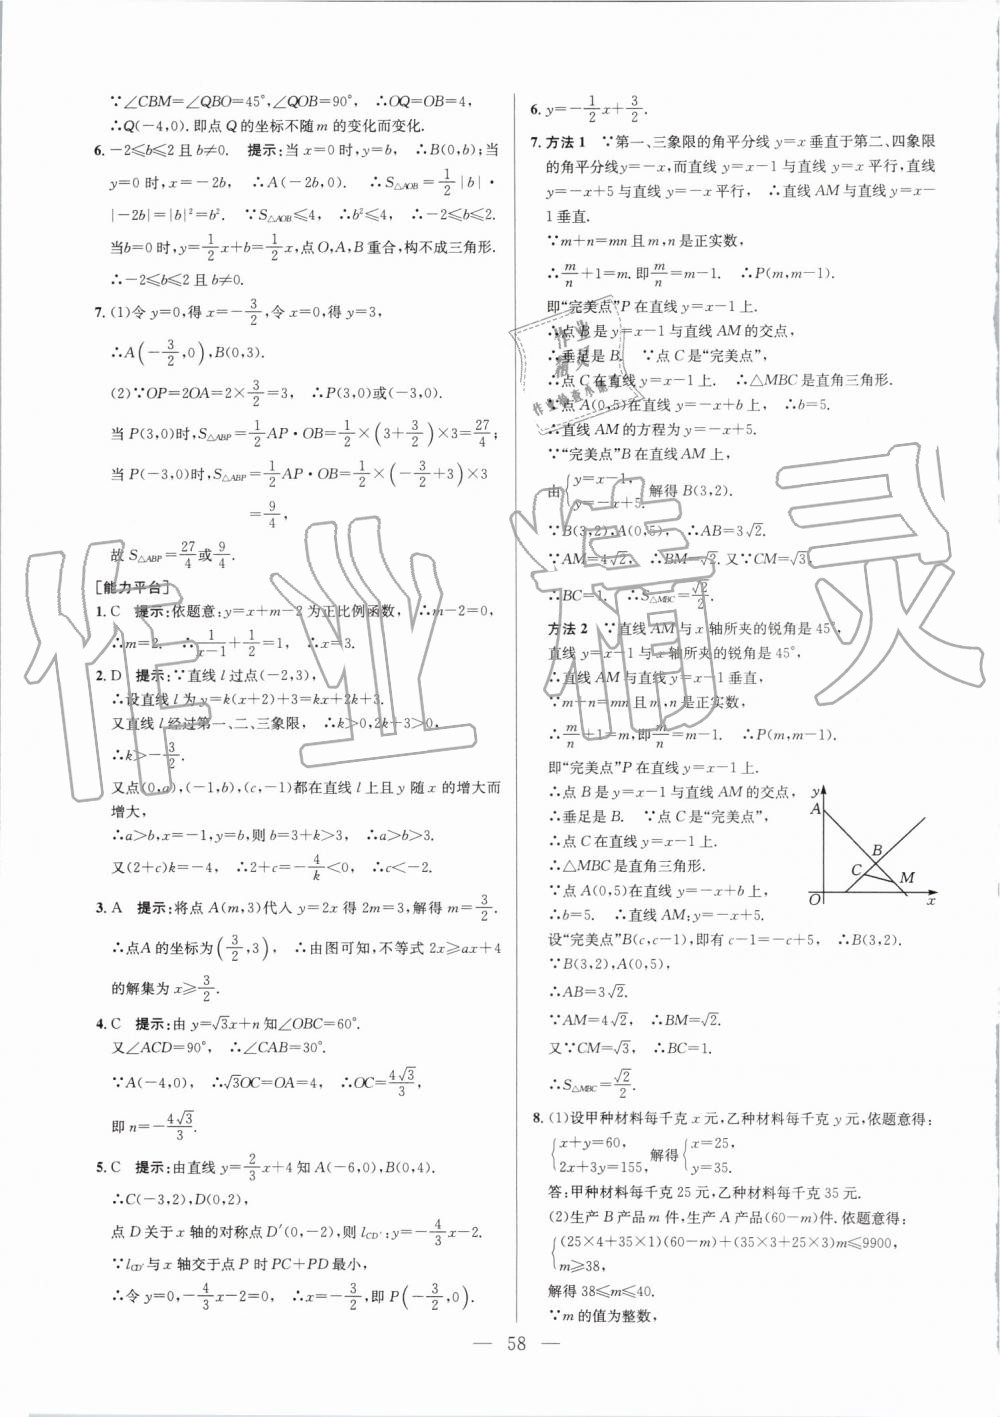 ∵∠CBM=∠QBO=45°,∠QOB=90°, ∴OQ=OB=4,
∴Q(-4,0).即点Q的坐标不随m的变化而变化.
6. -2≤b≤2且b≠0. 提示:当x=0时,y=b, ∴B(0,b);当
y=0时,x=-2b, ∴A(-2b,0). ∴S△AOB=1/2|b|·
|-2b|=|b|²=b². ∵S△AOB≤4, ∴b²≤4, ∴-2≤b≤2.
当b=0时,y=1/2x+b=1/2x,点O,A,B重合,构不成三角形.
∴-2≤b≤2且b≠0.
7. (1)令y=0,得x=-3/2,令x=0,得y=3,
∴A(-3/2,0),B(0,3).
(2)∵OP=2OA=2×3/2=3, ∴P(3,0)或(-3,0).
当P(3,0)时,S△ABP=1/2AP·OB=1/2×(3+3/2)×3=27/4;
当P(-3,0)时,S△ABP=1/2AP·OB=1/2×(-3/2+3)×3
=9/4,
故S△ABP=27/4或9/4.
[能力平台]
1. C 提示:依题意:y=x+m-2为正比例函数, ∴m-2=0,
∴m=2. ∴1/(x-1)+1/2=1, ∴x=3.
2. D 提示:∵直线l过点(-2,3),
∴设直线l为y=k(x+2)+3=kx+2k+3.
又直线l经过第一、二、三象限, ∴k>0,2k+3>0,
∴k>-3/2.
又点(0,a),(-1,b),(c,-1)都在直线l上且y随x的增大而
增大,
∴a>b,x=-1,y=b,则b=3+k>3, ∴a>b>3.
又(2+c)k=-4, ∴2+c=-4/k<0, ∴c<-2.
3. A 提示:将点A(m,3)代入y=2x得2m=3,解得m=3/2.
∴点A的坐标为(3/2,3), ∴由图可知,不等式2x≥ax+4
的解集为x≥3/2.
4. C 提示:由y=√3x+n知∠OBC=60°.
又∠ACD=90°, ∴∠CAB=30°.
∵A(-4,0), ∴√3OC=OA=4, ∴OC=4√3/3,
即n=-4√3/3.
5. C 提示:由直线y=2/3x+4知A(-6,0),B(0,4).
∴C(-3,2),D(0,2),
点D关于x轴的对称点D′(0,-2),则l_CD′:y=-4/3x-2.
∵l_CD′与x轴交于点P时PC+PD最小,
∴令y=0,-4/3x-2=0, ∴x=-3/2,即P(-3/2,0).
6. y=-1/2x+3/2.
7. 方法1 ∵第一、三象限的角平分线y=x垂直于第二、四象限
的角平分线y=-x,而直线y=x-1与直线y=x平行,直线
y=-x+5与直线y=-x平行, ∴直线AM与直线y=x-
1垂直.
∵m+n=mn且m,n是正实数,
∴m/n+1=m.即m/n=m-1. ∴P(m,m-1).
即“完美点”P在直线y=x-1上.
∴点B是y=x-1与直线AM的交点,
∴垂足是B. ∵点C是“完美点”,
∴点C在直线y=x-1上. ∴△MBC是直角三角形.
∵点A(0,5)在直线y=-x+b上, ∴b=5.
∴直线AM的方程为y=-x+5.
∵“完美点”B在直线AM上,
由{y=x-1, y=-x+5. 解得B(3,2).
∵B(3,2),A(0,5), ∴AB=3√2.
∵AM=4√2, ∴BM=√2.又∵CM=√3,
∴BC=1. ∴S△MBC=√2/2.
方法2 ∵直线AM与x轴所夹的锐角是45°,
直线y=x-1与x轴所夹的锐角是45°,
∴直线AM与直线y=x-1垂直,
∵m+n=mn且m,n是正实数,
∴m/n+1=m,即m/n=m-1. ∴P(m,m-1).
即“完美点”P在直线y=x-1上.
∴点B是y=x-1与直线AM的交点,
∴垂足是B. ∵点C是“完美点”,
∴点C在直线y=x-1上.
∴△MBC是直角三角形.
∵点A(0,5)在直线y=-x+b上,
∴b=5. ∴直线AM:y=-x+5.
y
A
B
C
M
O
x
设“完美点”B(c,c-1),即有c-1=-c+5, ∴B(3,2).
∵B(3,2),A(0,5),
∴AB=3√2.
∵AM=4√2, ∴BM=√2.
又∵CM=√3, ∴BC=1.
∴S△MBC=√2/2.
8. (1)设甲种材料每千克x元,乙种材料每千克y元,依题意得:
{x+y=60, 2x+3y=155, 解得{x=25, y=35.
答:甲种材料每千克25元,乙种材料每千克35元.
(2)生产B产品m件,生产A产品(60-m)件.依题意得:
{(25×4+35×1)(60-m)+(35×3+25×3)m≤9900, m≥38,
解得38≤m≤40.
∵m的值为整数,
— 58 —
作业精灵
作业
精灵
作业检查小能手